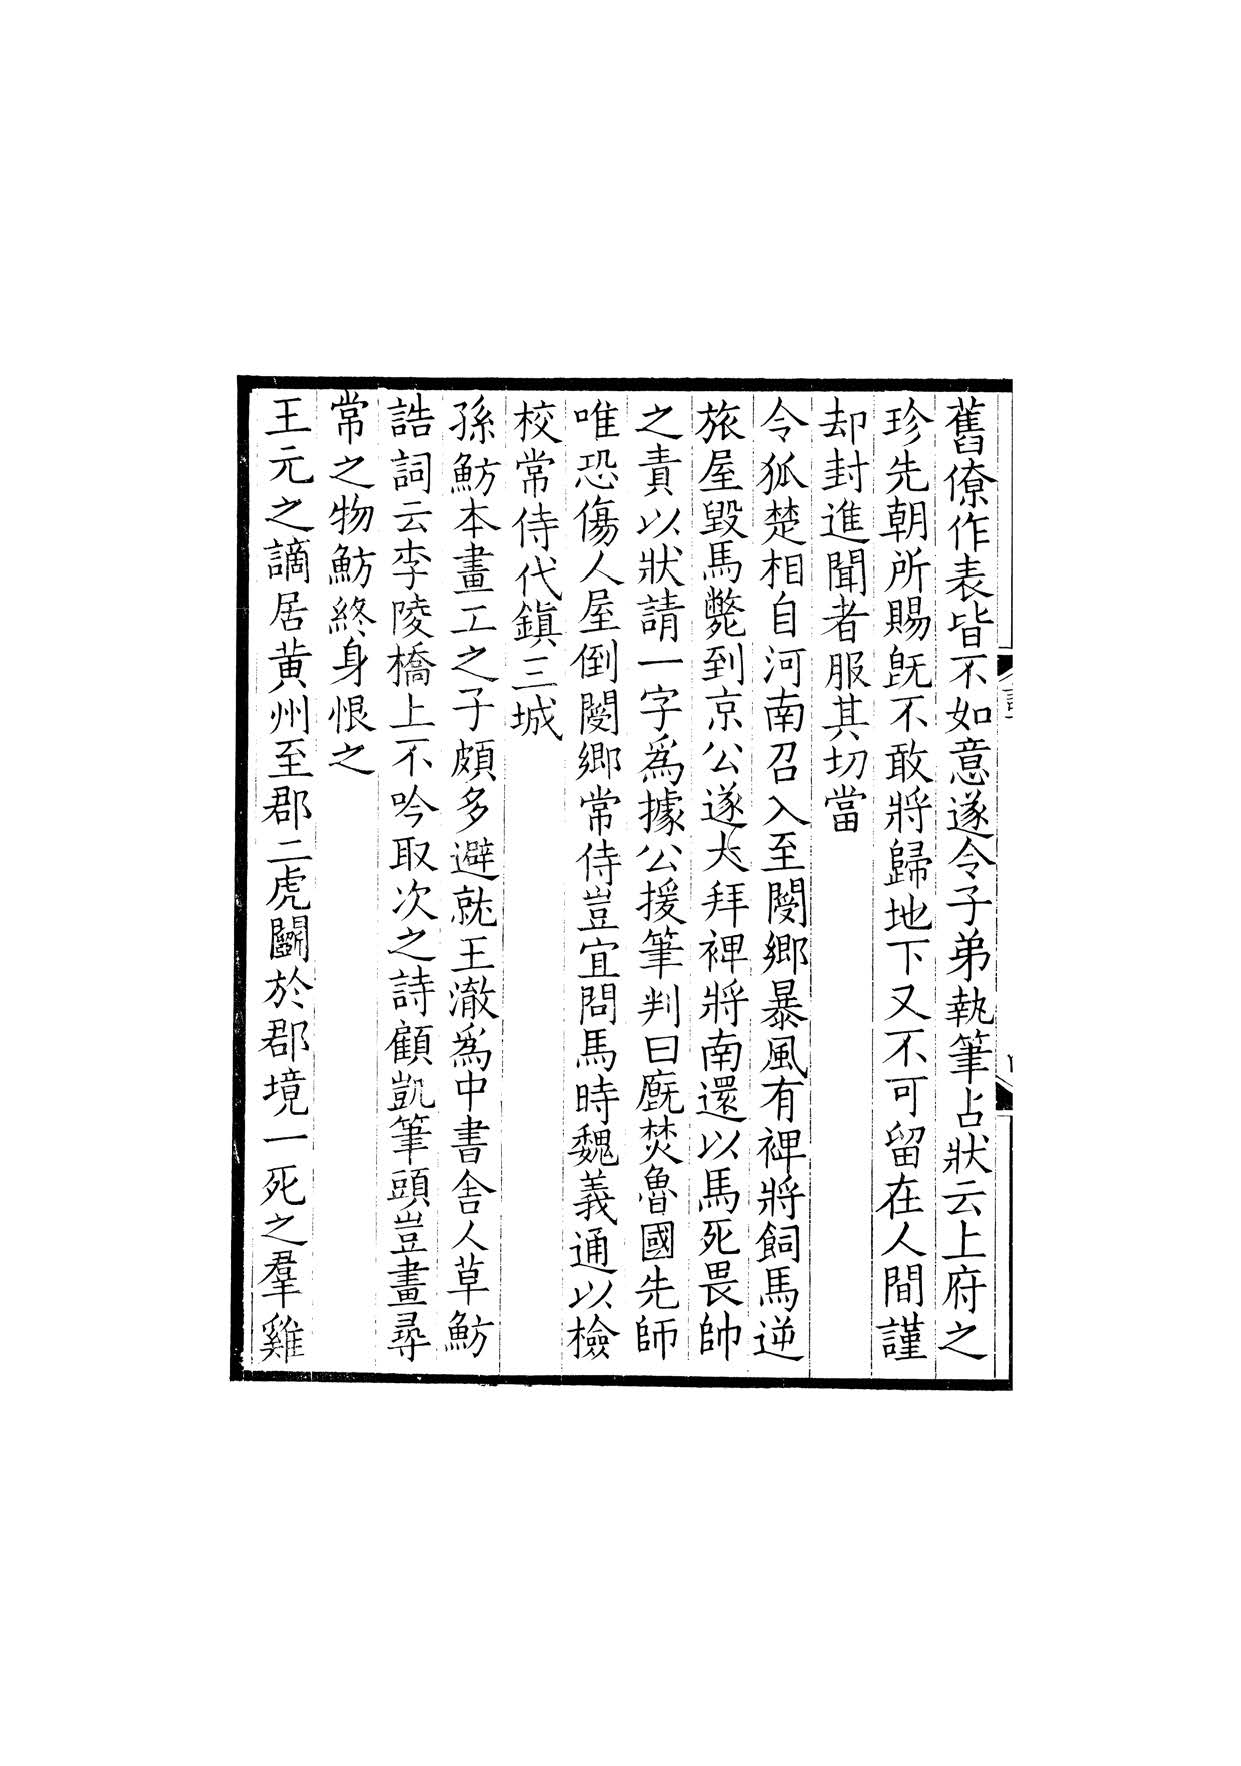 舊僚作表皆不如意遂令子弟執筆占狀云上府之
珍先朝所賜旣不敢將歸地下又不可留在人間謹
却封進聞者服其切當
令狐楚相自河南召入至閿鄉暴風有裨將飼馬逆
旅屋毀馬斃到京公遂大拜裨將南還以馬死畏帥
之責以狀請一字爲據公援筆判曰廐焚魯國先師
唯恐傷人屋倒閿鄉常侍豈宜問馬時魏義通以檢
校常侍代鎮三城
孫魴本畫工之子頗多避就王澈爲中書舍人草魴
誥詞云李陵橋上不吟取次之詩顧凱筆頭豈畫尋
常之物魴終身恨之
王元之謫居黄州至郡二虎鬭於郡境一死之羣雞